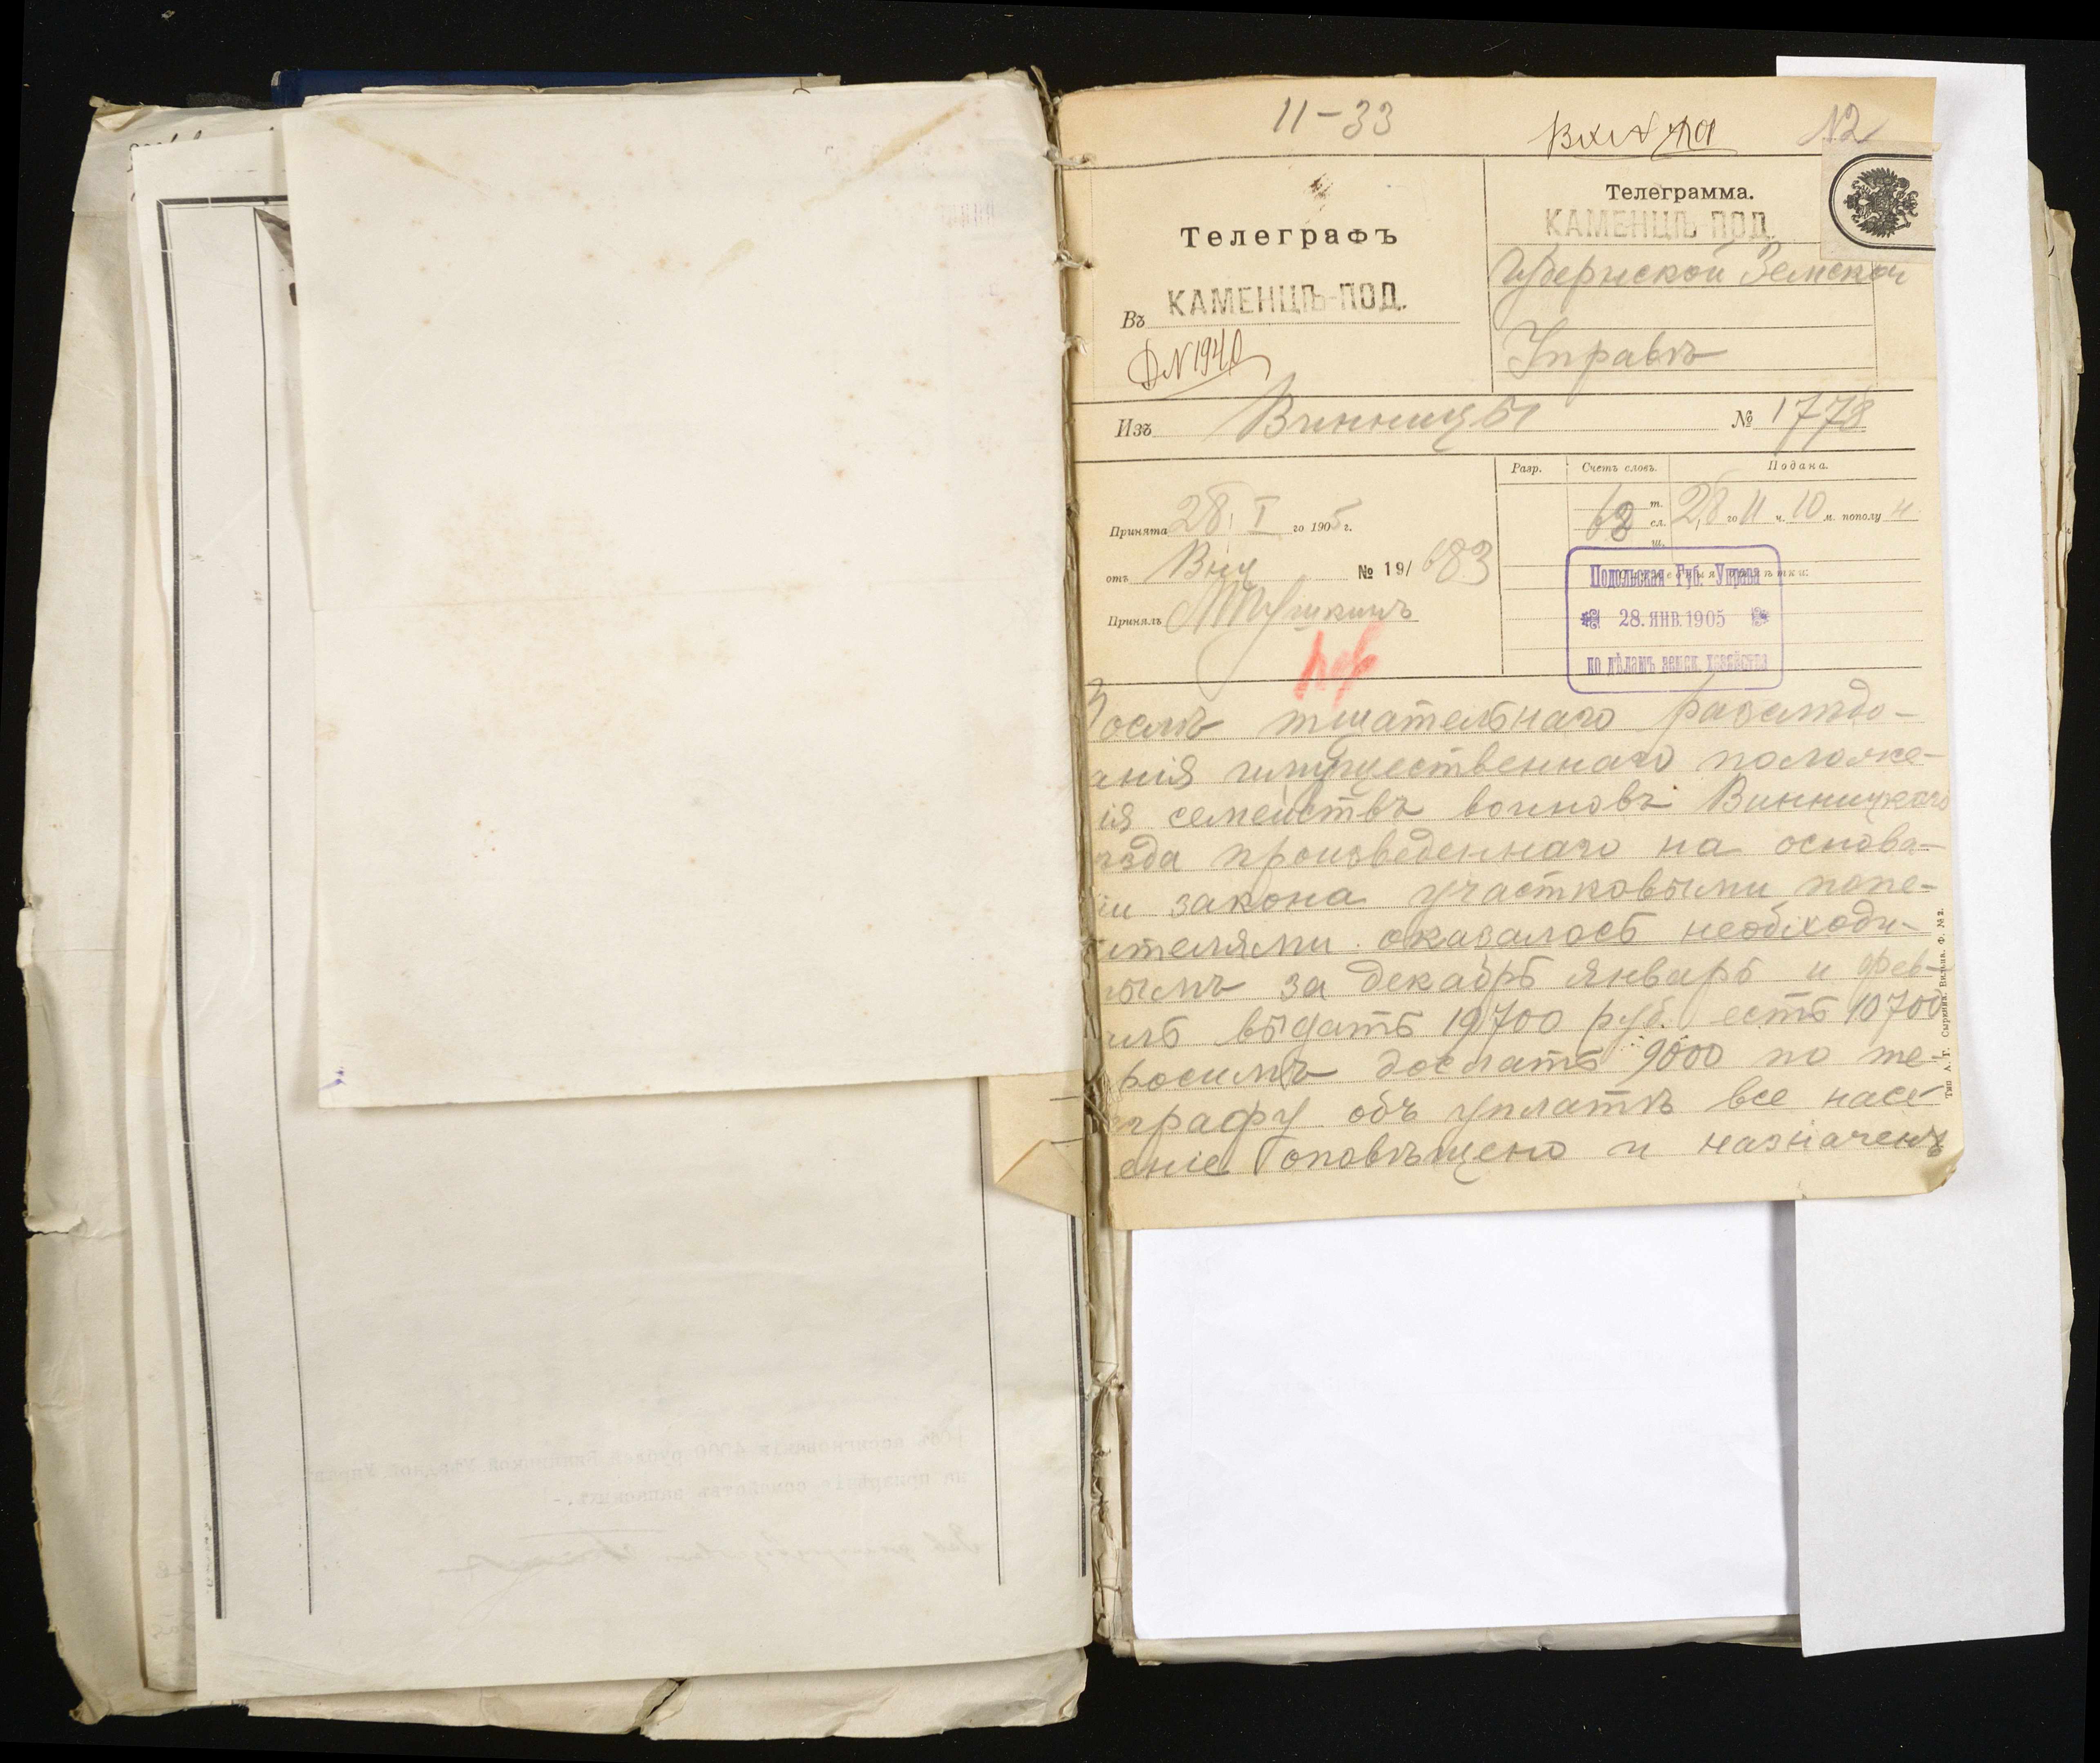 11-33
12
Телеграфъ
Въ КАМЕНЦѢ-ПОД.
Д№1940
Телеграмма.
КАМЕНЦѢ-ПОД.
Губернской Земской
Управѣ
Изъ Винницы № 1778
Разр. Счетъ словъ. Подана.
Принята 28 I го 1905 г.
т.
сл.
ш.
28 го 11 ч. 10 м. пополу н
отъ Внц № 19/ 683
Принялъ
Подольская Губ. Управа
28. ЯНВ. 1905
по дѣламъ земск. хозяйства
Послѣ тщательнаго разслѣдо-
анія имущественнаго положе-
ія семействъ воиновъ Винницкаго
ѣзда произведеннаго на основа-
іи закона участковыми попе-
ителями оказалось необходи-
мымъ за декабрь январь и фев-
аль выдать 19700 руб. есть 10700
росимъ дослать 9000 по те-
еграфу объ уплатѣ все насе
еніе оповѣщено и назначены
Тип. А. Г. Сыркина. Вильна. Ф. № 2.
Объ ассигнованіи 4000 рублей Винницкой Уѣздной Управѣ
на призрѣніе семействъ запасныхъ.-